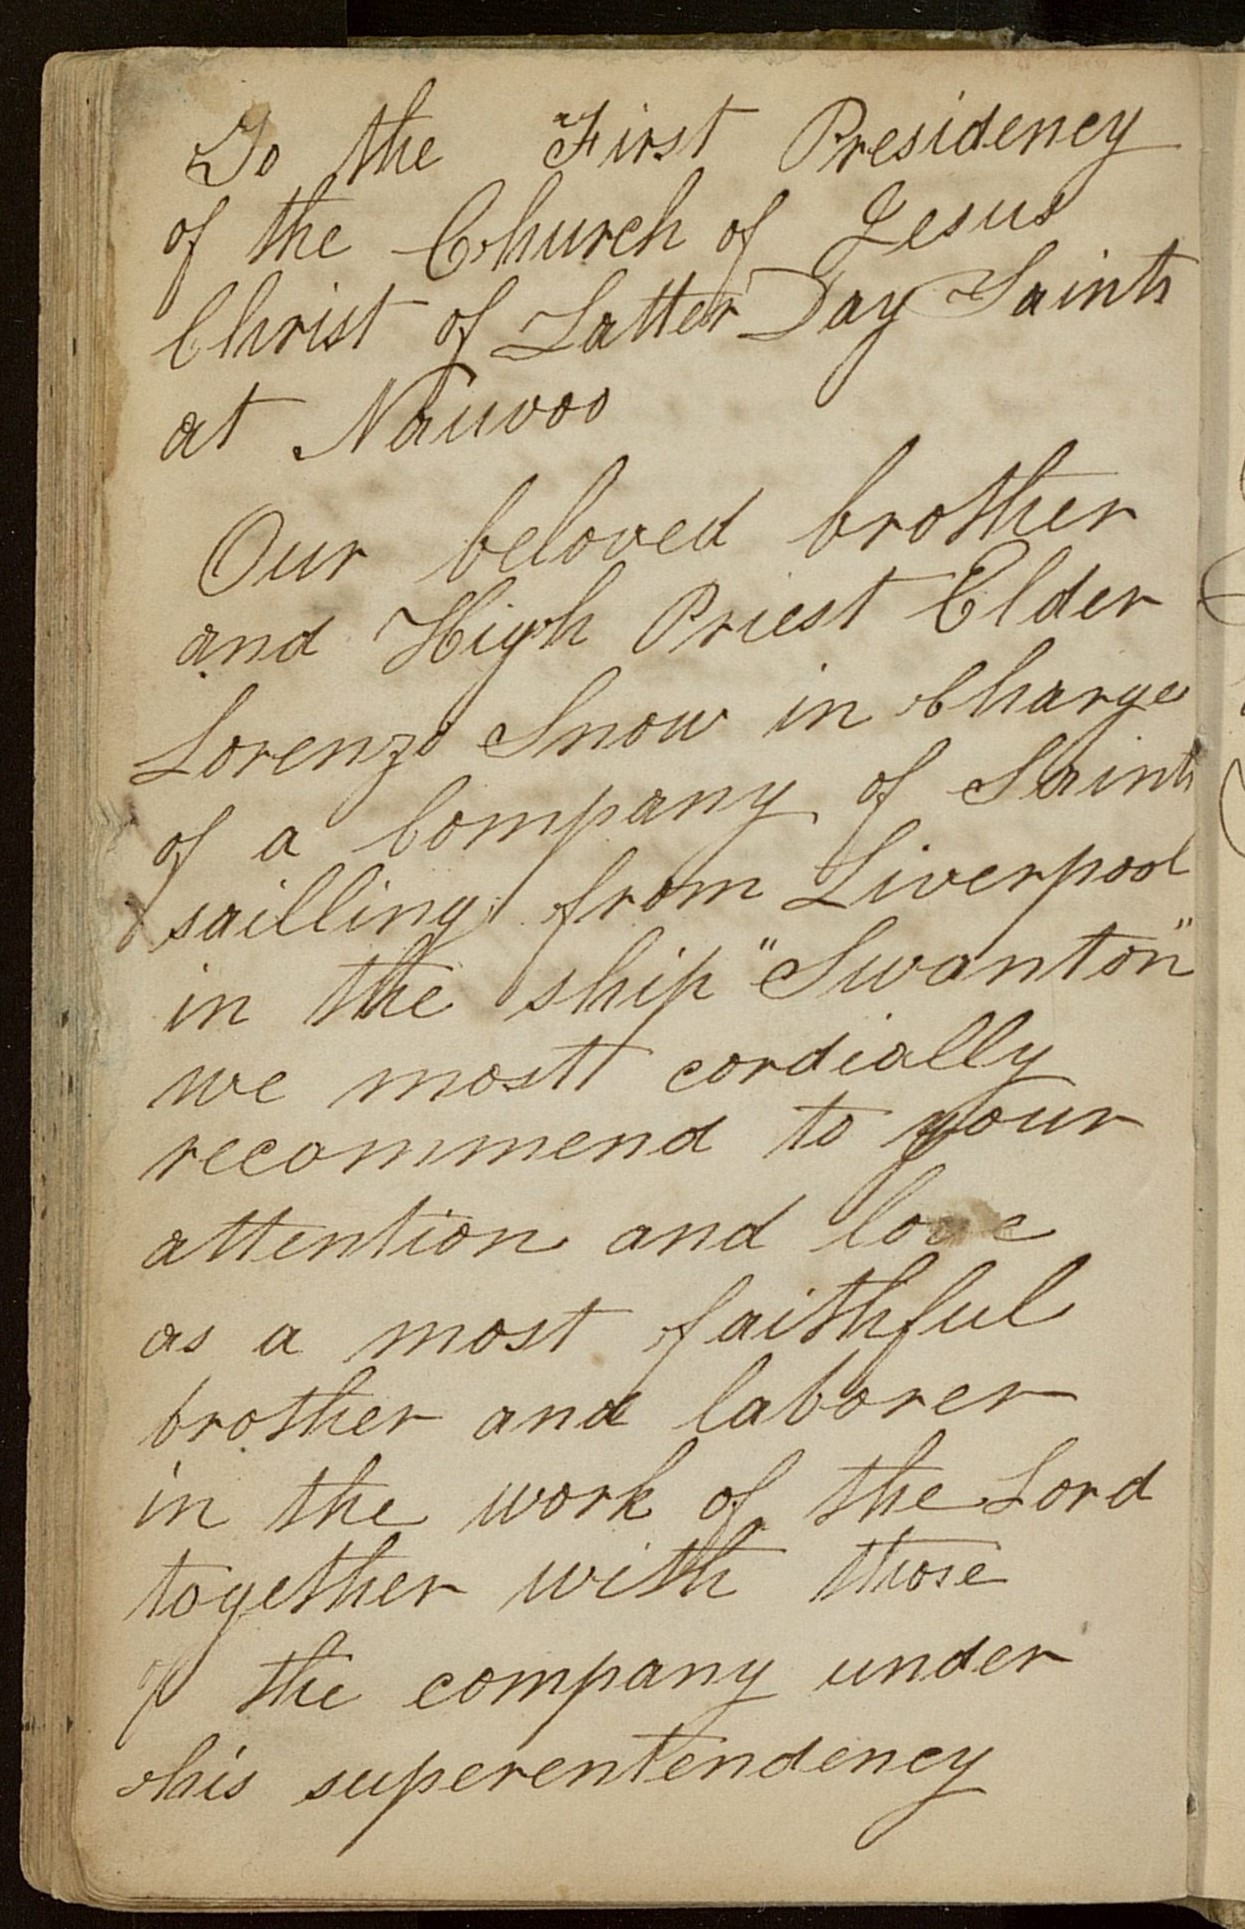 To the First Presidency
of the Church of Jesus
Christ of Latter Day Saints
at Nauvoo
Our beloved brother
and High Priest Elder
Lorenzo Snow in Charge
of a Company of Saints
sailling from Liverpool
in the ship "Swanton"
we most cordially
recommend to your
attention and love
as a most faithful
brother and laborer
in the work of the Lord
together with those
of the company under
his superentendency